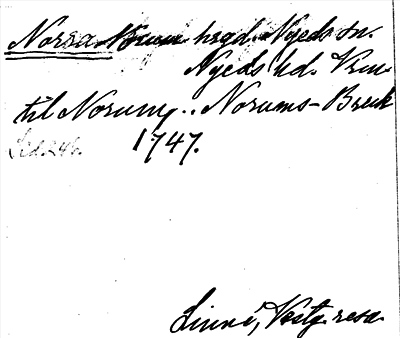 Norra Bruk hrgd. Nyeds sn.
Nyeds hd. Vrm.
till Norum... Norums-Bruk
Sid. 246. 1747.
Linné, Västg. resa